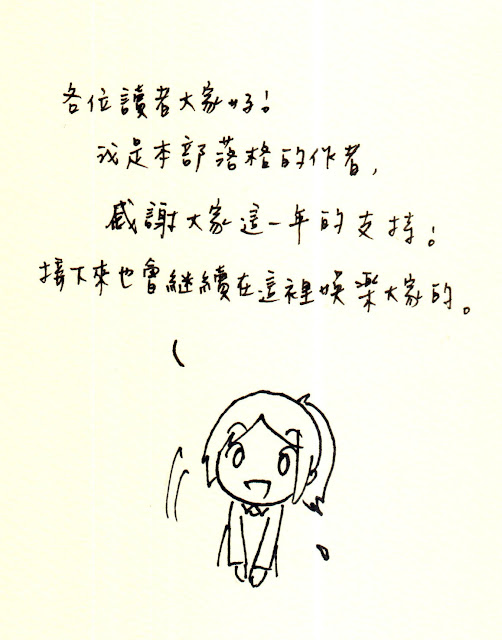 各位讀者大家好!
我是本部落格的作者,
感謝大家這一年的支持!
接下來也會繼續在這裡娛樂大家的。